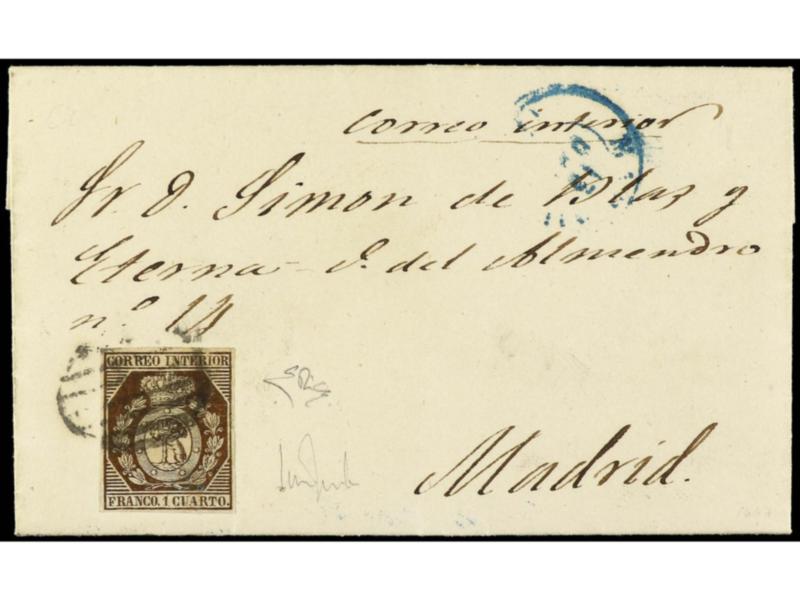 Correo interior
Sr. D. Simon de Blas y
Eterna - C. del Almendro
nº 14
CORREO INTERIOR
FRANCO. 1 CUARTO.
Madrid.